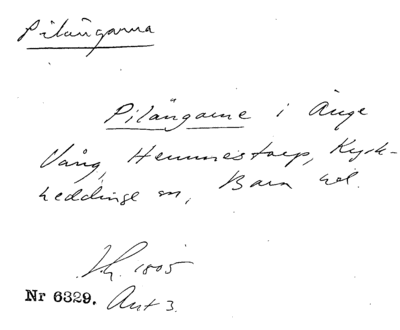 Pilängarna
Pilängarne i Änge
Vång, Hemmestorp, Kyrk-
heddinge sn, Bara hd.
1805
Nr 6329. Akt 3.